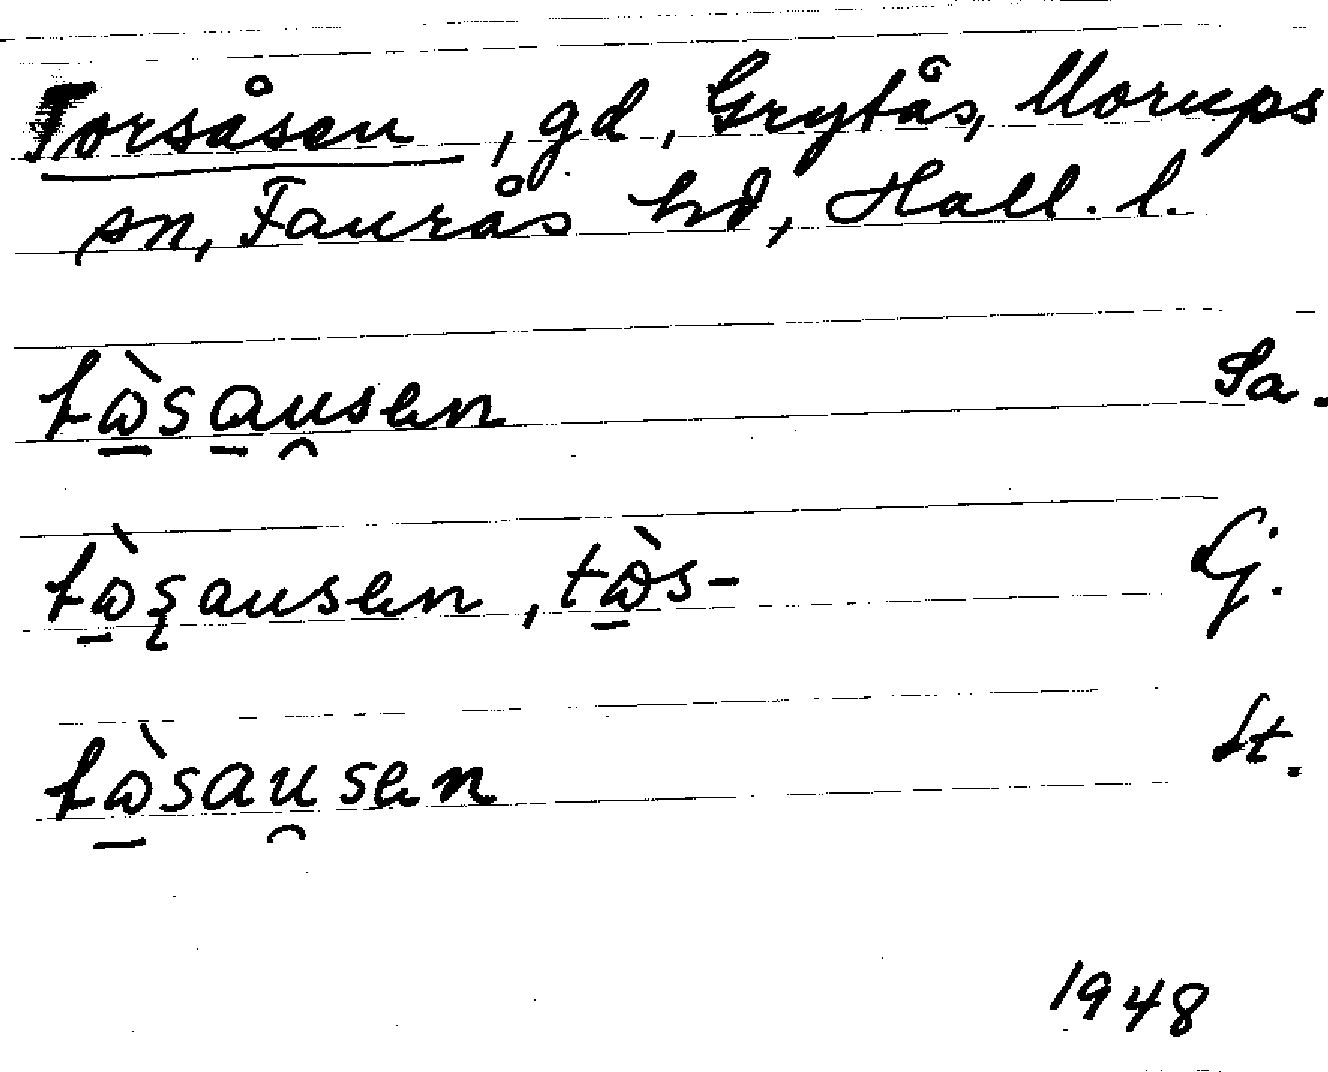 Torsåsen, gd, Grytås, Morups
sn, Faurås hd, Hall. l.
tὼ̱sa̱u̯sen Sa.
tὼ̱ʂausen, tὼ̱s- G.
tὼ̱sau̯sen St.
1948